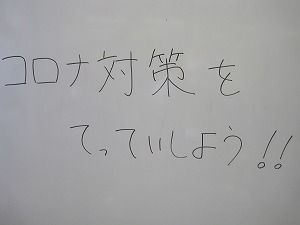 コロナ対策を
てっていしよう!!